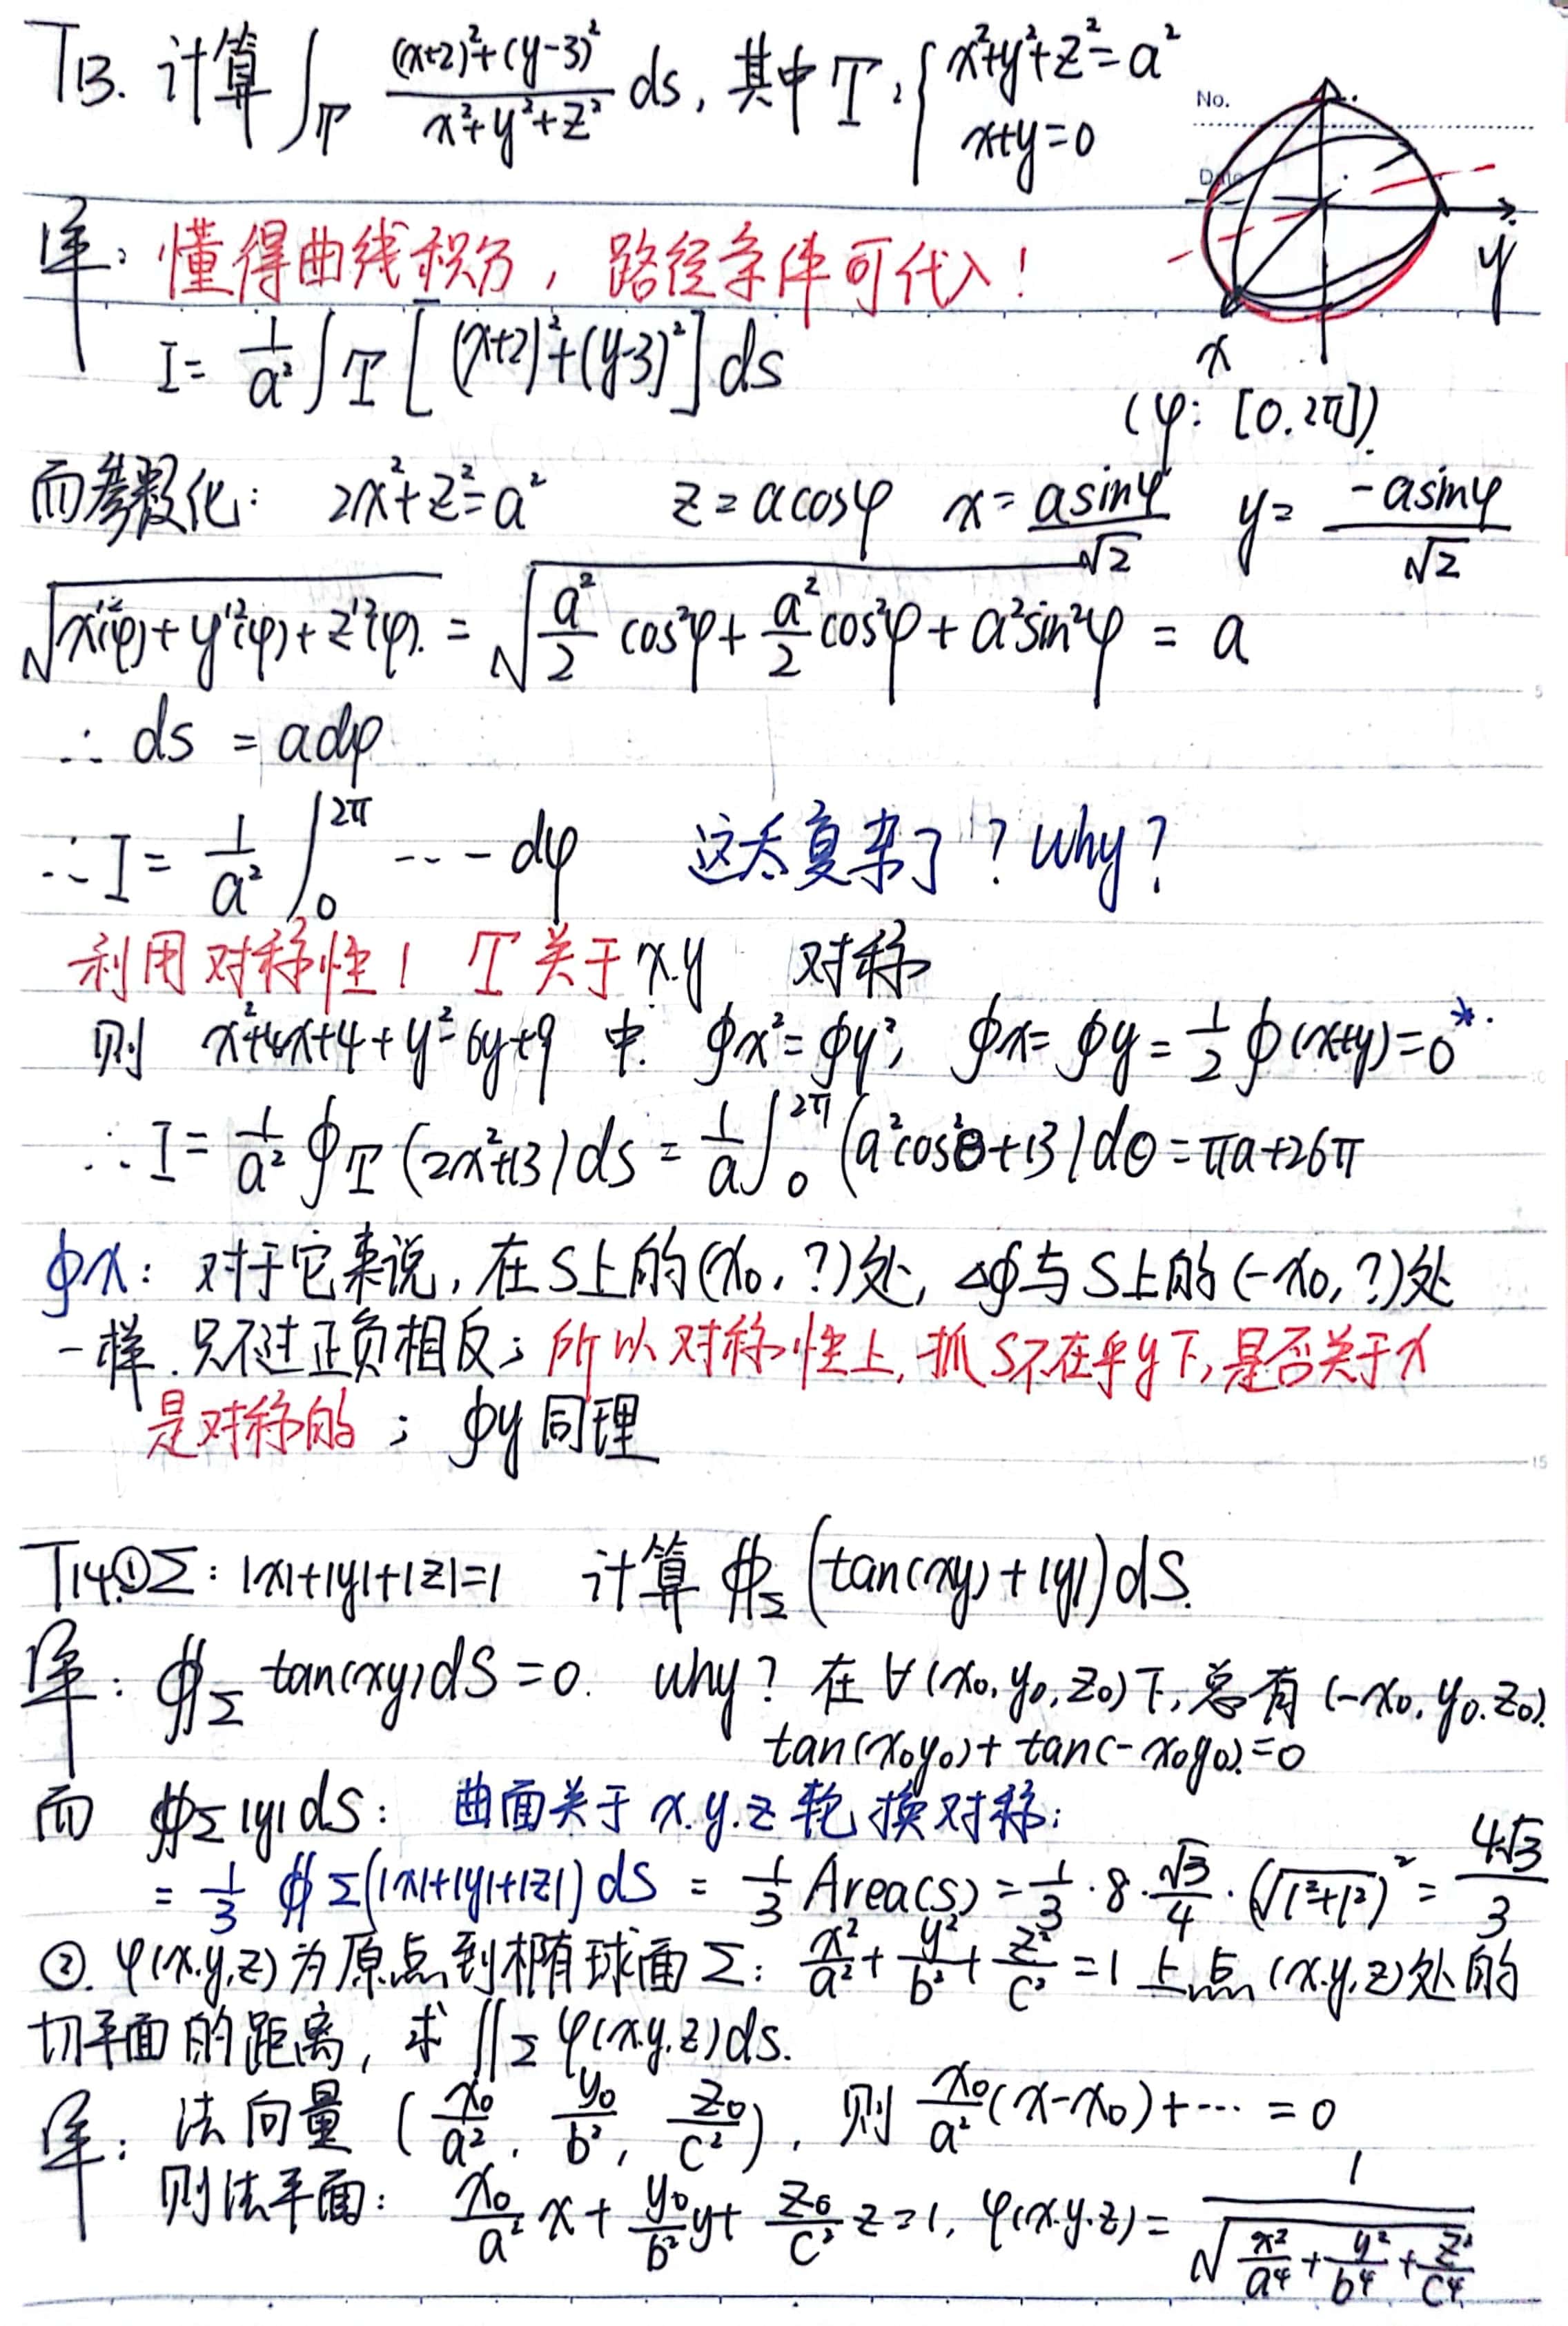 T13. 计算 ∫_Γ ((x+2)²+(y-3)²)/(x²+y²+z²) ds, 其中 Γ: { x²+y²+z²=a²
x+y=0
No.
Date
y
x
解: 懂得曲线积分, 路径条件可代入!
I= 1/a² ∫_Γ [(x+2)²+(y-3)²] ds
(φ: [0.2π]).
而参数化: 2x²+z²=a² z=acosφ x= asinφ/√2 y= -asinφ/√2
√(x'²(φ)+y'²(φ)+z'²(φ)) = √(a²/2 cos²φ + a²/2 cos²φ + a²sin²φ) = a
∴ ds = adφ
∴ I = 1/a² ∫₀^2π --- dφ 这太复杂了? Why?
利用对称性! Γ关于x.y 对称
则 x²+4x+4+y²-6y+9 中. ∮x²=∮y², ∮x=∮y=1/2∮(x+y)=0*.
∴ I= 1/a² ∮_Γ (2x²+13)ds = 1/a ∫₀^2π (a²cos²θ+13)dθ = πa+26π
∮x: 对于它来说, 在S上的(x₀, ?)处, △∮与S上的(-x₀, ?)处
一样. 只不过正负相反; 所以对称性上, 抓S不在乎y下, 是否关于x
是对称的; ∮y同理
T14.①Σ: |x|+|y|+|z|=1 计算 ∯_Σ (tan(xy)+|y|)dS.
解: ∯_Σ tan(xy)dS=0. why? 在∀(x₀,y₀,z₀)下,总有(-x₀.y₀.z₀).
tan(x₀y₀)+tan(-x₀y₀)=0
而 ∯_Σ|y|dS: 曲面关于x.y.z轮换对称:
= 1/3 ∯_Σ(|x|+|y|+|z|)dS = 1/3 Area(S) = 1/3·8·√3/4·(√(1²+1²))² = 4√3/3
②. φ(x.y,z)为原点到椭球面Σ: x²/a²+y²/b²+z²/c²=1上点(x.y.z)处的
切平面的距离, 求∬_Σ φ(x.y,z)ds.
解: 法向量 (x₀/a², y₀/b², z₀/c²), 则 x₀/a²(x-x₀)+⋯=0
则法平面: x₀/a² x + y₀/b² y + z₀/c² z=1, φ(x.y.z)= 1/√(x²/a⁴+y²/b⁴+z²/c⁴)